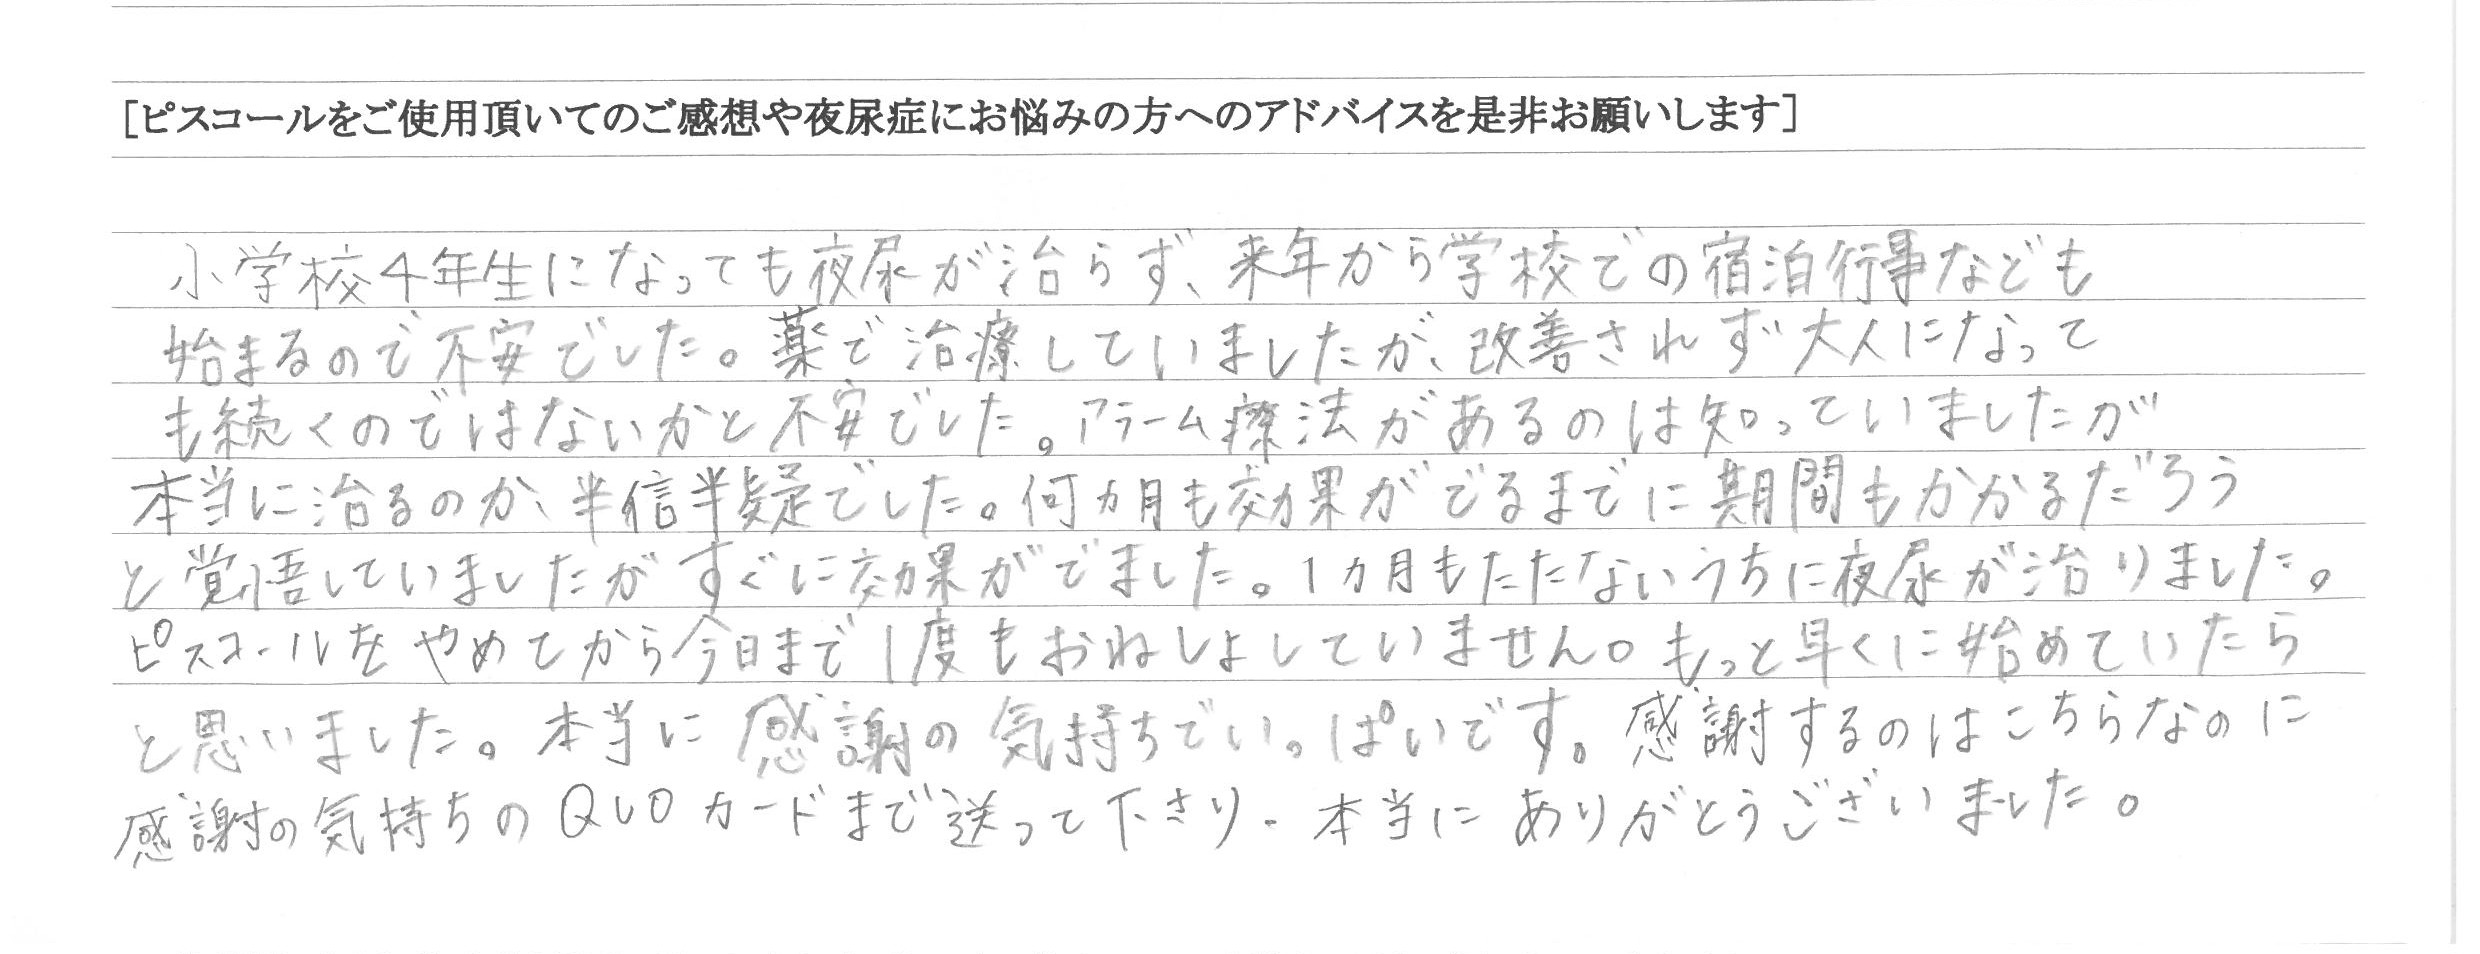 [ピスコールをご使用頂いてのご感想や夜尿症にお悩みの方へのアドバイスを是非お願いします]
小学校4年生になっても夜尿が治らず、来年から学校での宿泊行事なども
始まるので不安でした。薬で治療していましたが、改善されず大人になって
も続くのではないかと不安でした。アラーム療法があるのは知っていましたが
本当に治るのか、半信半疑でした。何カ月も効果がでるまでに期間もかかるだろう
と覚悟していましたがすぐに効果がでました。1カ月もたたないうちに夜尿が治りました。
ピスコールをやめてから今日まで1度もおねしょしていません。もっと早くに始めていたら
と思いました。本当に感謝の気持ちでいっぱいです。感謝するのはこちらなのに
感謝の気持ちのQUOカードまで送って下さり、本当にありがとうございました。